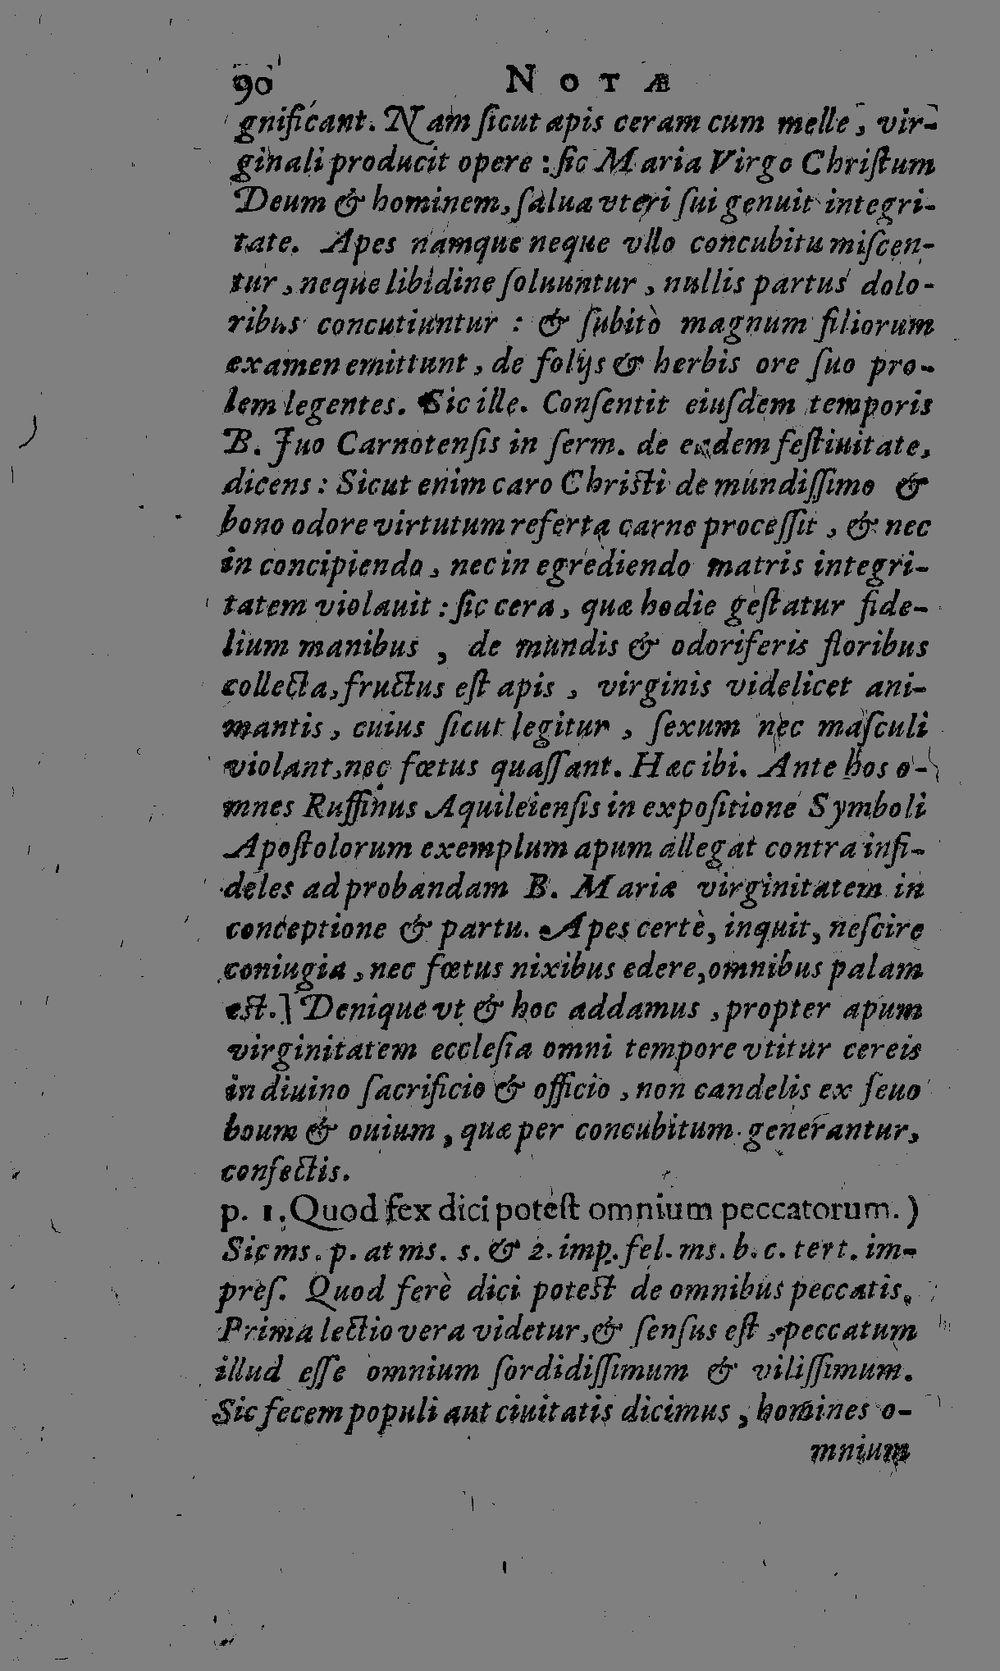 90 NOTÆ
gnificant. Nam ſicut apis ceram cum melle, vir-
ginali producit opere: ſic Maria Virgo Chriſtum
Deum & hominem, ſalua vteri ſui genuit integri-
tate. Apes namque neque vllo concubitu miſcen-
tur, neque libidine ſoluuntur, nullis partus dolo-
ribus concutiuntur: & ſubitò magnum filiorum
examen emittunt, de folijs & herbis ore ſuo pro-
lem legentes. Sic ille. Conſentit eiuſdem temporis
B. Iuo Carnotenſis in ſerm. de eadem feſtiuitate,
dicens: Sicut enim caro Chriſti de mundiſſimo &
bono odore virtutum referta carne proceſſit, & nec
in concipiendo, nec in egrediendo matris integri-
tatem violauit: ſic cera, quæ hodie geſtatur fide-
lium manibus, de mundis & odoriferis floribus
collecta, fructus eſt apis, virginis videlicet ani-
mantis, cuius ſicut legitur, ſexum nec maſculi
violant, nec fœtus quaſſant. Hæc ibi. Ante hos o-
mnes Ruffinus Aquileienſis in expoſitione Symboli
Apoſtolorum exemplum apum allegat contra infi-
deles ad probandam B. Mariæ virginitatem in
conceptione & partu. Apes certè, inquit, neſcire
coniugia, nec fœtus nixibus edere, omnibus palam
eſt.] Denique vt & hoc addamus, propter apum
virginitatem eccleſia omni tempore vtitur cereis
in diuino ſacrificio & officio, non candelis ex ſeuo
boum & ouium, quæ per concubitum generantur,
confectis.
p. 1. Quod fex dici poteſt omnium peccatorum.)
Sic ms. p. at ms. s. & 2. imp. fel. ms. b. c. tert. im-
preſ. Quod ferè dici poteſt de omnibus peccatis.
Prima lectio vera videtur, & ſenſus eſt, peccatum
illud eſſe omnium ſordidiſſimum & viliſſimum.
Sic fecem populi aut ciuitatis dicimus, homines o-
mnium